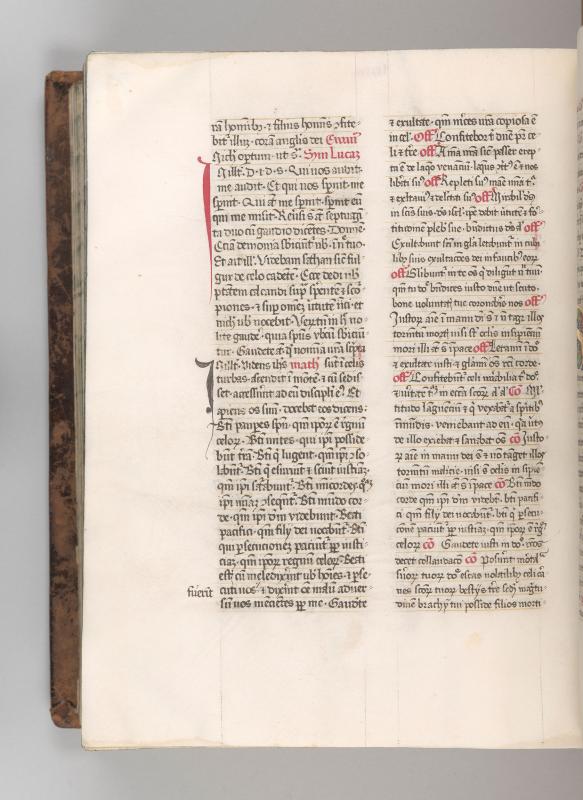 rā hominibꝫ ⁊ filius hominis ꝯfite
bitᷣ illuꝫ corā anglis dei Ewāḡ
optum ut sᷓ. Scdm Lucaꝫ
In illt̄. D. i. d. s. Qui uos audit
me audit. Et qui uos spnit me
spnit. Qui aūt me spnit. spnit eū
qui me misit. Reūsi sūt septuagī
ta duo cū gaudio dicētes. Dom̄e
Etiā demonia sbiciūtᷣ nb̄. in noīe tuo.
Et ait ill̄. Videbam sathan sic̄ ful
gur de celo cadētē. Ecce dedi ub̄
ptātem calcandi supᷓ sp̄entes ⁊ scor
piones. ⁊ supᷓ omeꝫ uitutē inīci ⁊
nichil ub̄ nocebit. Verūtn̄ in h̄ no
lite gaudē. quia spūs ub̄ sbiciū
tur. Gaudete aūt q nomīa ur̄a scpta
In illt̄. Videns ih̄s math sūt i celis
turbas. ascendit i mōtē. ⁊ cū sedis
set. accesserūt ad eū discipli eiꝰ. Et
apiens os suū. docebat eos dicens:
Bt̄i paupes spū. qm̄ ipoꝝ ē regnū
celoꝝ. Bt̄i mites. qm̄ ipi posside
būt t̄ra. Bt̄i qui lugent. qm̄ ipi ꝯso
labūtᷣ. Bt̄i q esuriūt ⁊ sciūt iusticiaꝫ.
qm̄ ipi satᷓbūtᷣ. Bt̄i micordes. qm̄
ipi mīaꝫ ꝯseqntᷣ. Bt̄i mūdo cor
de. qm̄ ipi dm̄ videbunt. Beati
pacifici. qm̄ filij dei uocabūtᷣ. Bt̄i
qui psecucionez paciūtᷣ pp̄ iusti
ciaꝫ. qm̄ ipoꝝ regnū celoꝝ. Beati
estis cū maledixīnt ub̄ hoīes. ⁊ pse
fūerīt
cuti uos ⁊ dixīnt oē malū aduer
sū uos mēciētes pp̄ me. Gaudete
⁊ exultate. qm̄ mc̄es ur̄a copiosa ē
in cel̄. Off Confitebortᷣ dn̄e pᷓ ce
li ⁊ tr̄e Off Aīma nr̄a sic̄ passer erep
ta ē de laqo venanciū. laqus ꝯtᷣtꝰ ē ⁊ nos
libāti suꝰ Off Repleti suꝰ mane mīa tᷓ.
⁊ exltauꝰ ⁊ delc̄ati suꝰ Off Mirabil̄ ds̄
in scīs suis. ds̄ isrl̄. ipe dabit uitutē ⁊ foᷓ
titudinē plebi sue. bn̄dictus ds̄ al̄a Off
Exultabunt scī in glā letabunt in cubi
libꝫ suis exultacōes dei in faucibꝫ eoꝝ
Off Gl̄ibunt in te oēs q diligūt n̄ tuū.
qm̄ tu dn̄e bn̄dices iusto dn̄e ut scuto
bone uoluntatis tue coronasti nos Off
Iustoꝝ aīe i manu dī st̄ ⁊ n̄ tāget illos
tormētū mortis. uisi st̄ oclis insipienciū
mori illi aūt st̄ i pace Off Letamī i dn̄o
⁊ exultate iusti. ⁊ glāmī oēs recti corde.
Off Confitebunt celi mirabilia tᷓ dn̄e.
⁊ ueritatē tuā in eccīa scōꝝ al̄a al̄a Cō Ml̄
titudo languenciū ⁊ q vexabātᷣ a spitibꝫ
inmūdis. veniebant ad eū. qa uitus
de illo exiebat ⁊ sanabat oēs cō Iusto
ꝝ aīe in manu dei st̄ ⁊ nō tāget illos
tormētū malicie. uisi st̄ oclis īsipiē
ciū mori illi aūt st̄ i pace cō Bt̄i mūdo
corde qm̄ ipi dm̄ videbūt. bt̄i pacifi
ci qm̄ filij dei uocabūt. bt̄i q psecu
cōnē paciūtᷣ pp̄ iusticiaꝫ. qm̄ ipoꝝ ē regnū
celoꝝ cō Gaudete iusti in dn̄o. rc̄os
decet collaudacō cō Posuerūt mōtalia
suoꝝ tuoꝝ dn̄e escas volatilibꝫ celi. car
nes scōꝝ tuoꝝ bestijs tr̄e. scdm magᷓtu
dinē brachij tui posside filios morti